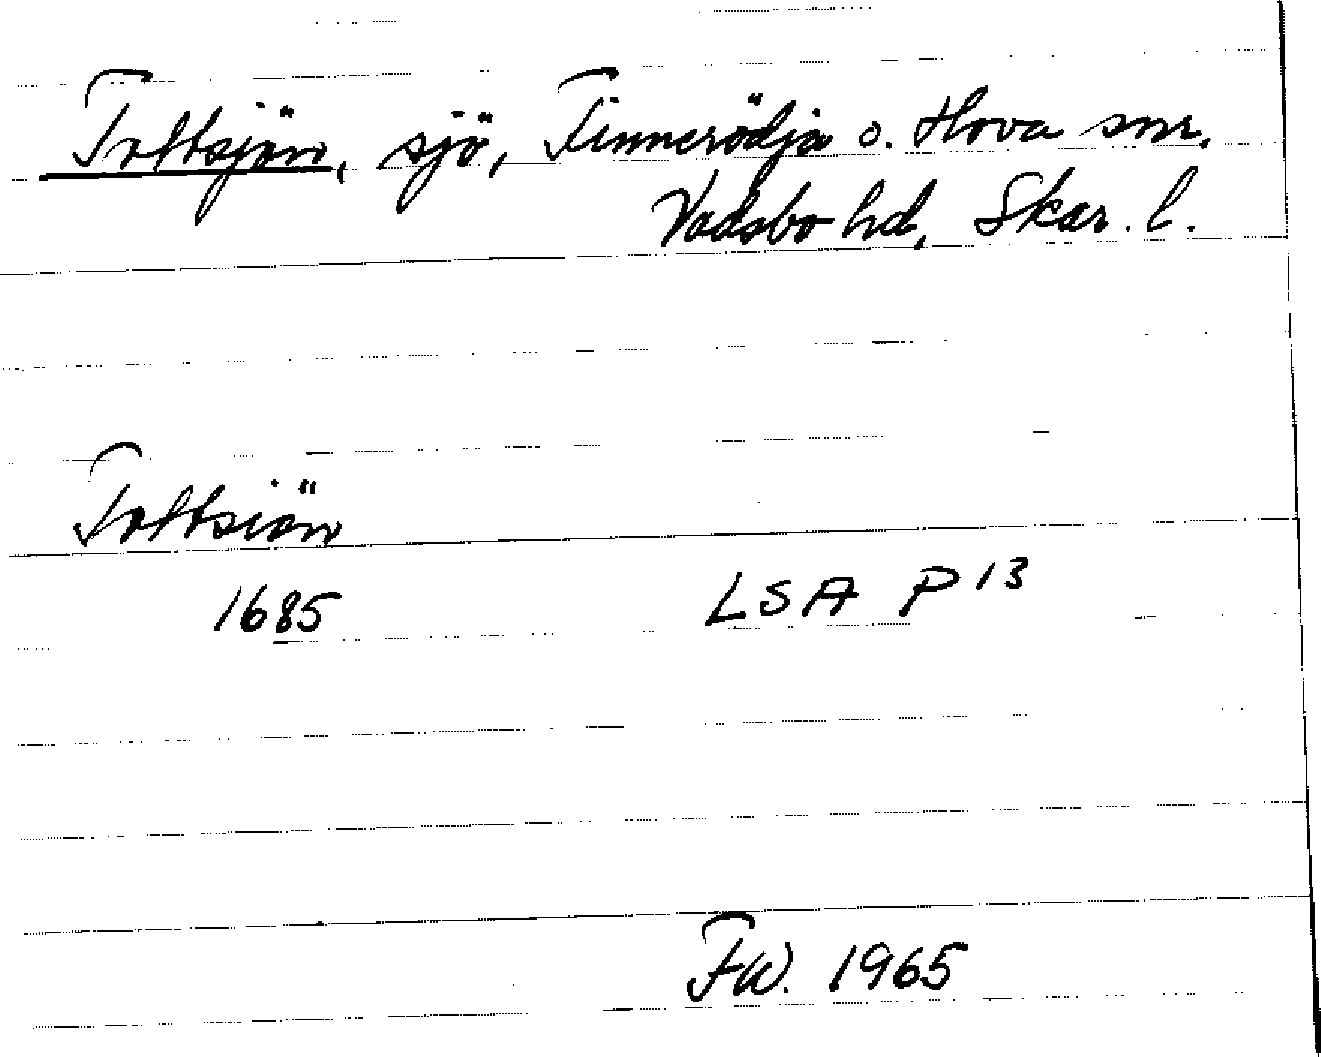 Toftsjön, sjö, Finnerödja o. Hova snr,
Vadsbo hd, Skar. l.
Toftsiön
1685 LSA P 13
F.W. 1965